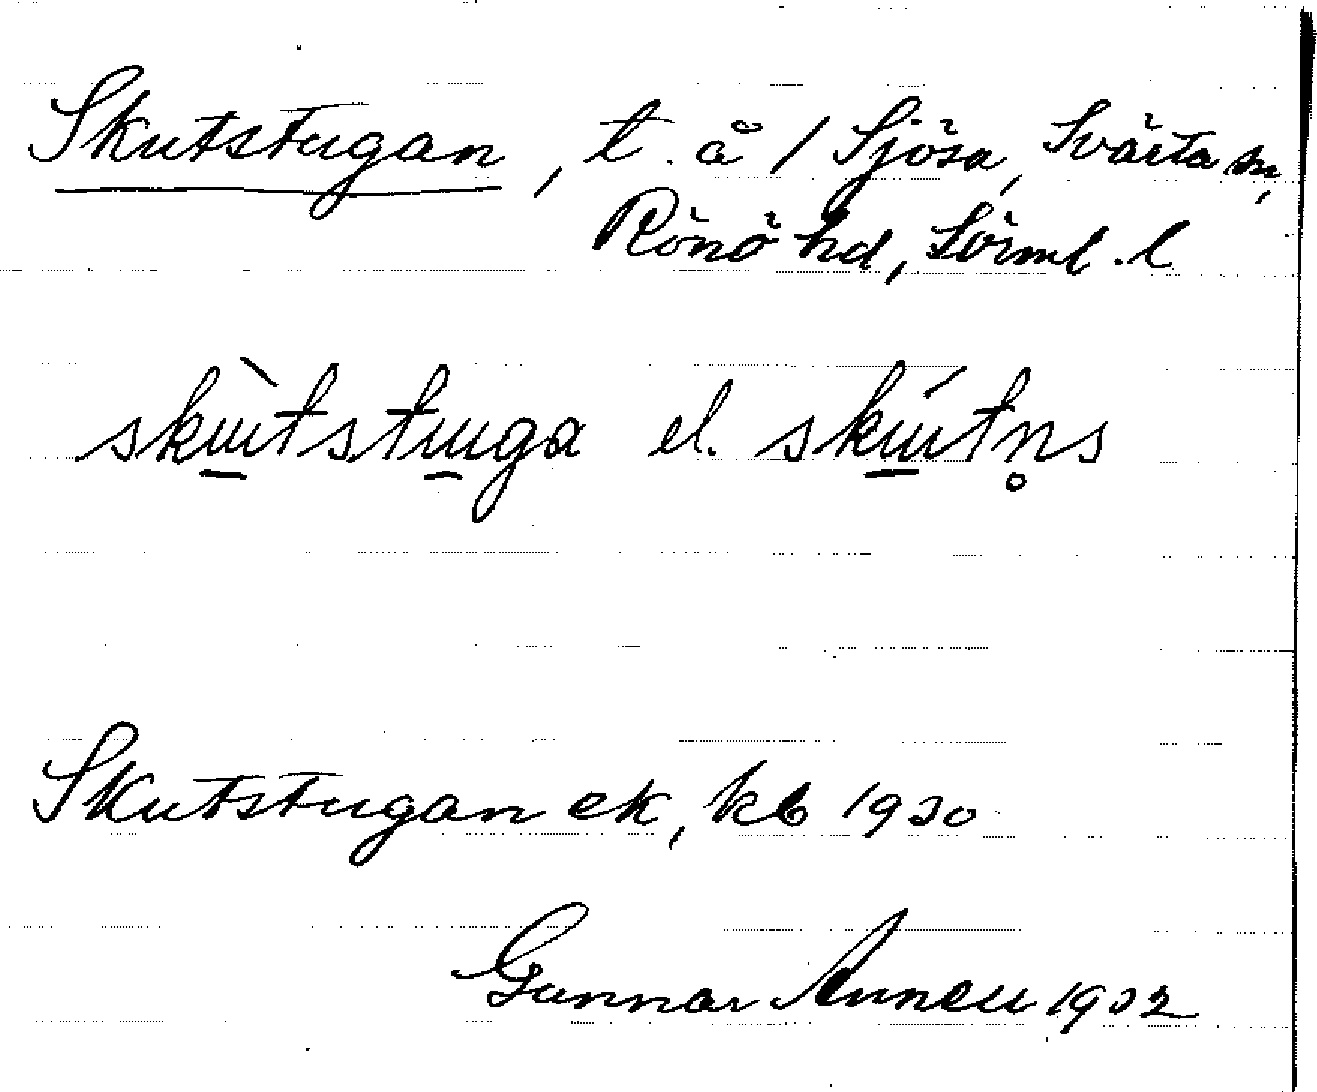 Skutstugan, t. å / Sjösa, Svärta sn,
Rönö hd, Sörml. l
skùtstuga el. skútn̥s
Skutstugan ek, kb 1930
Gunnar 1932